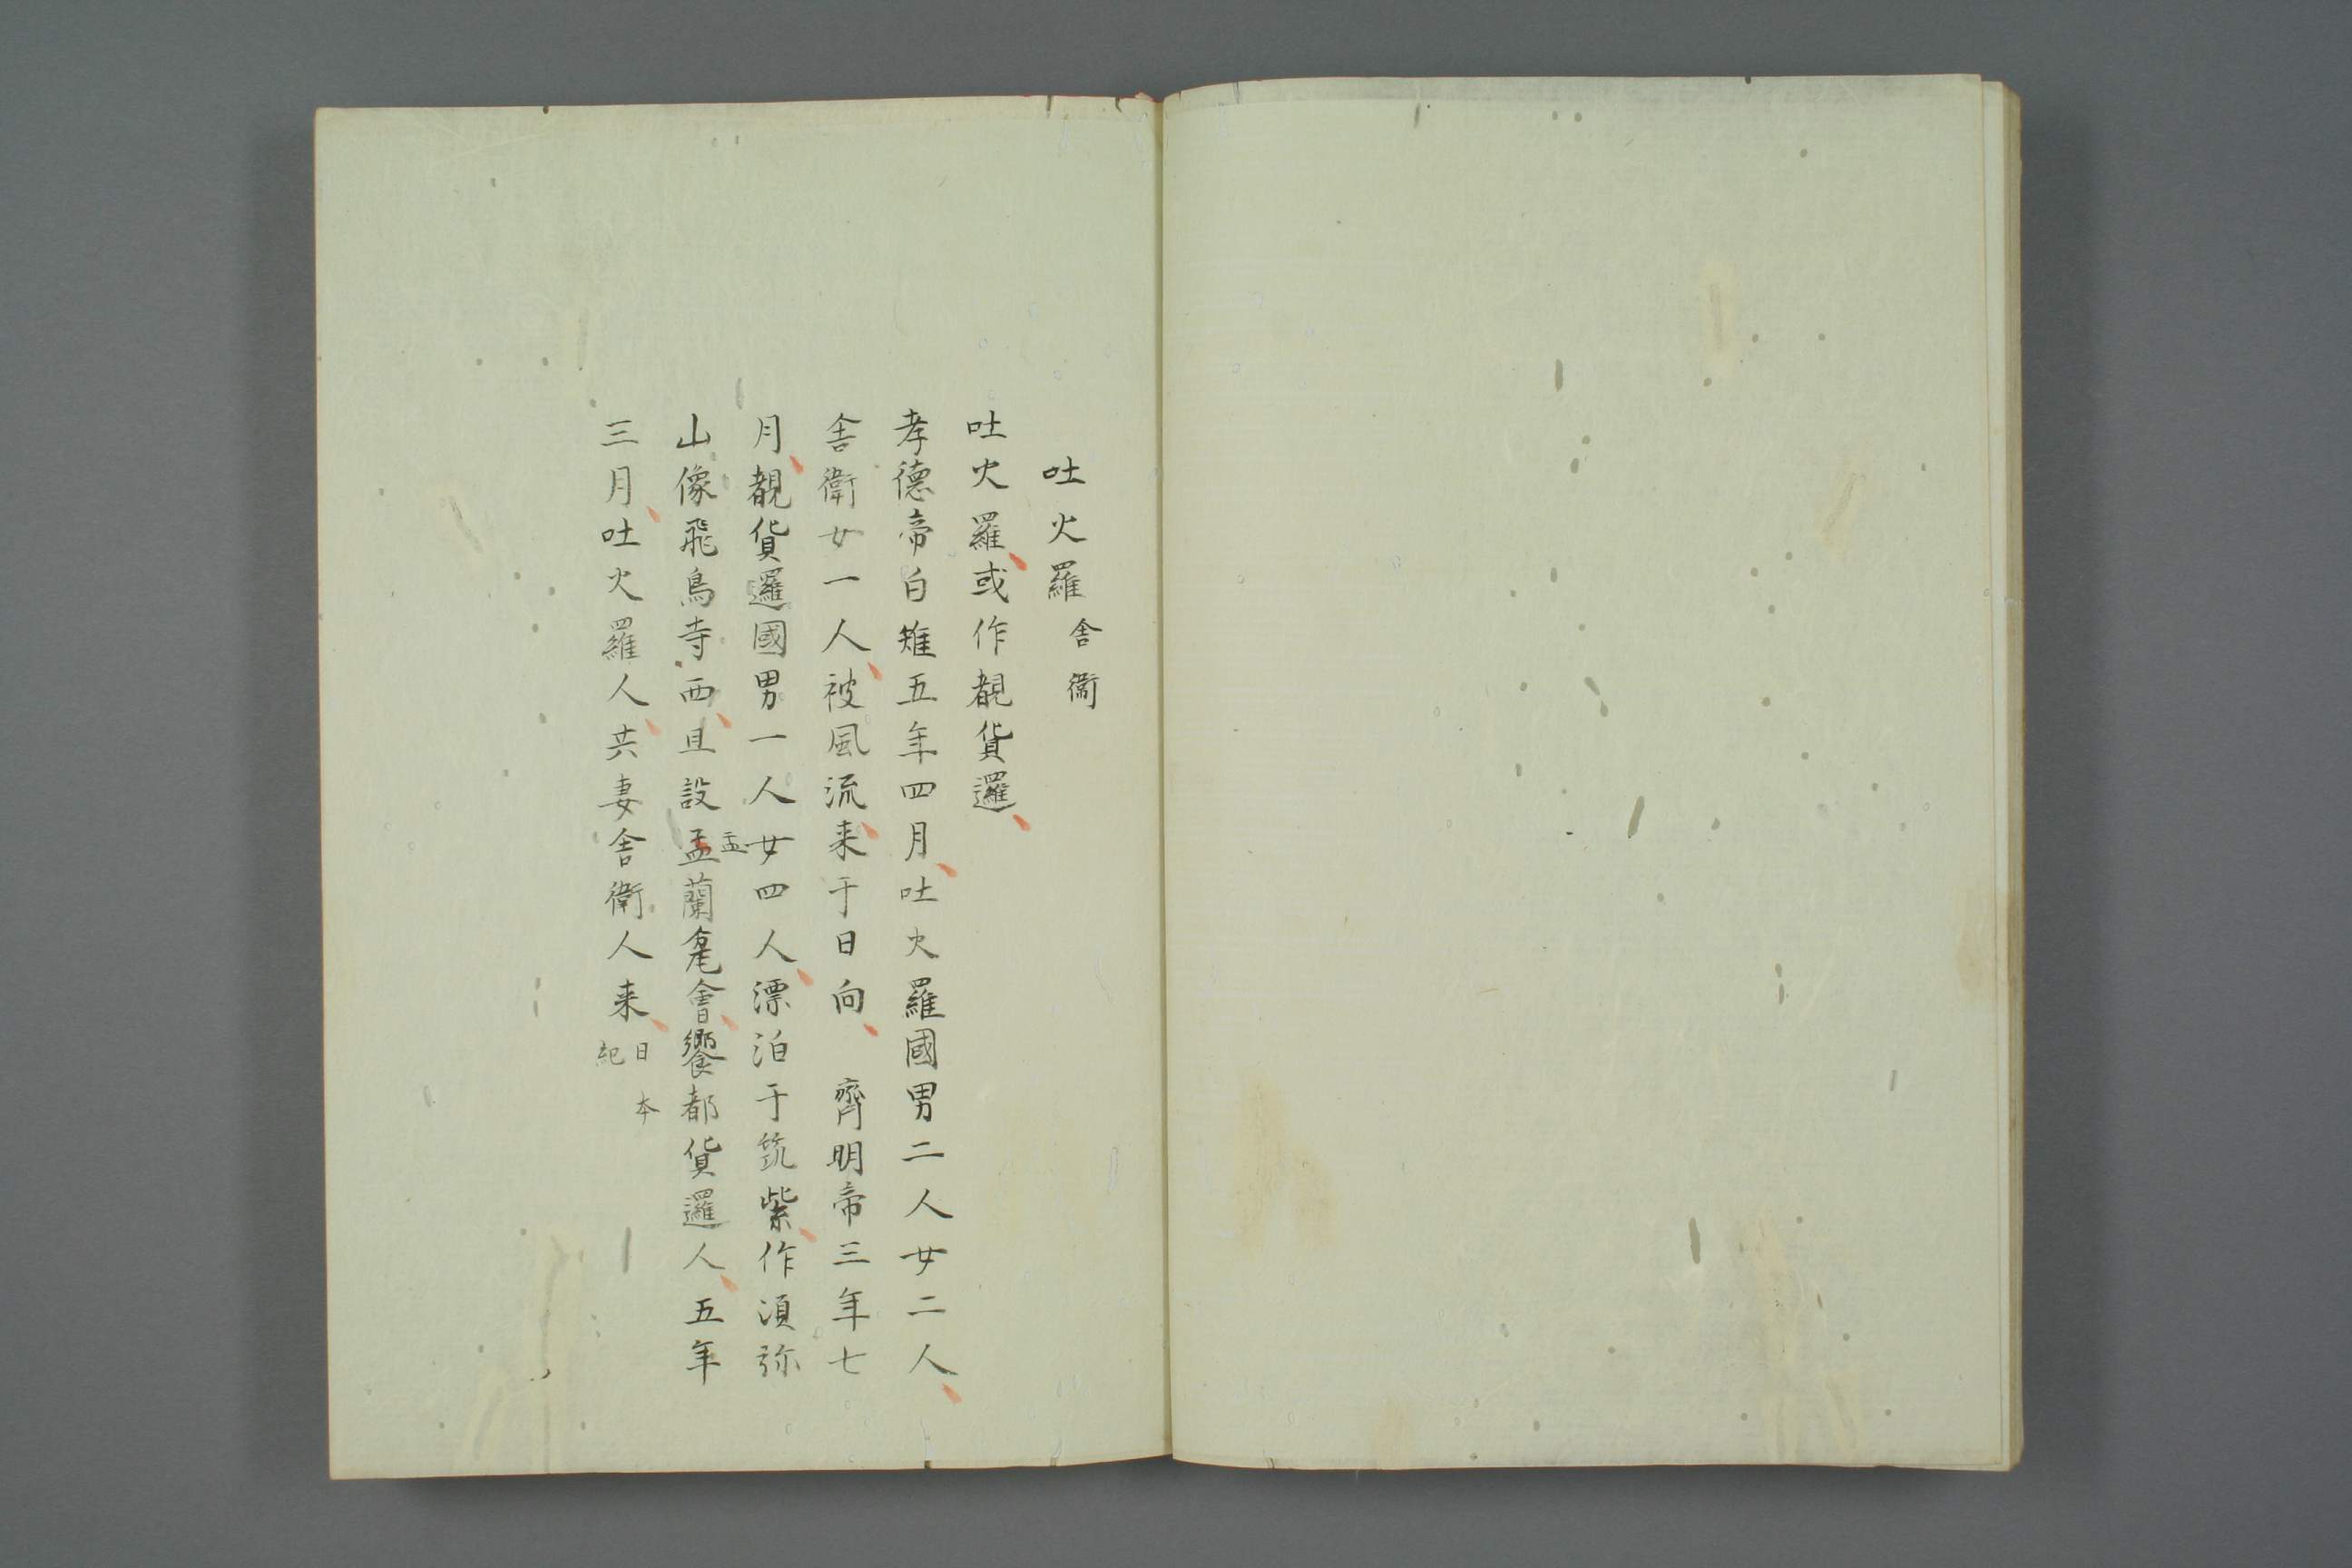 吐火羅舎衞
吐火羅或作覩貨邏
孝德帝白雉五年四月吐火羅國男二人女二人
舎衛女一人被風流来于日向　齊明帝三年七
月覩貨邏國男一人女四人漂泊于筑紫作須弥
山像飛鳥寺西且設孟蘭瓫會饗都貨邏人五年
盂
三月吐火羅人共妻舎衛人来日本紀